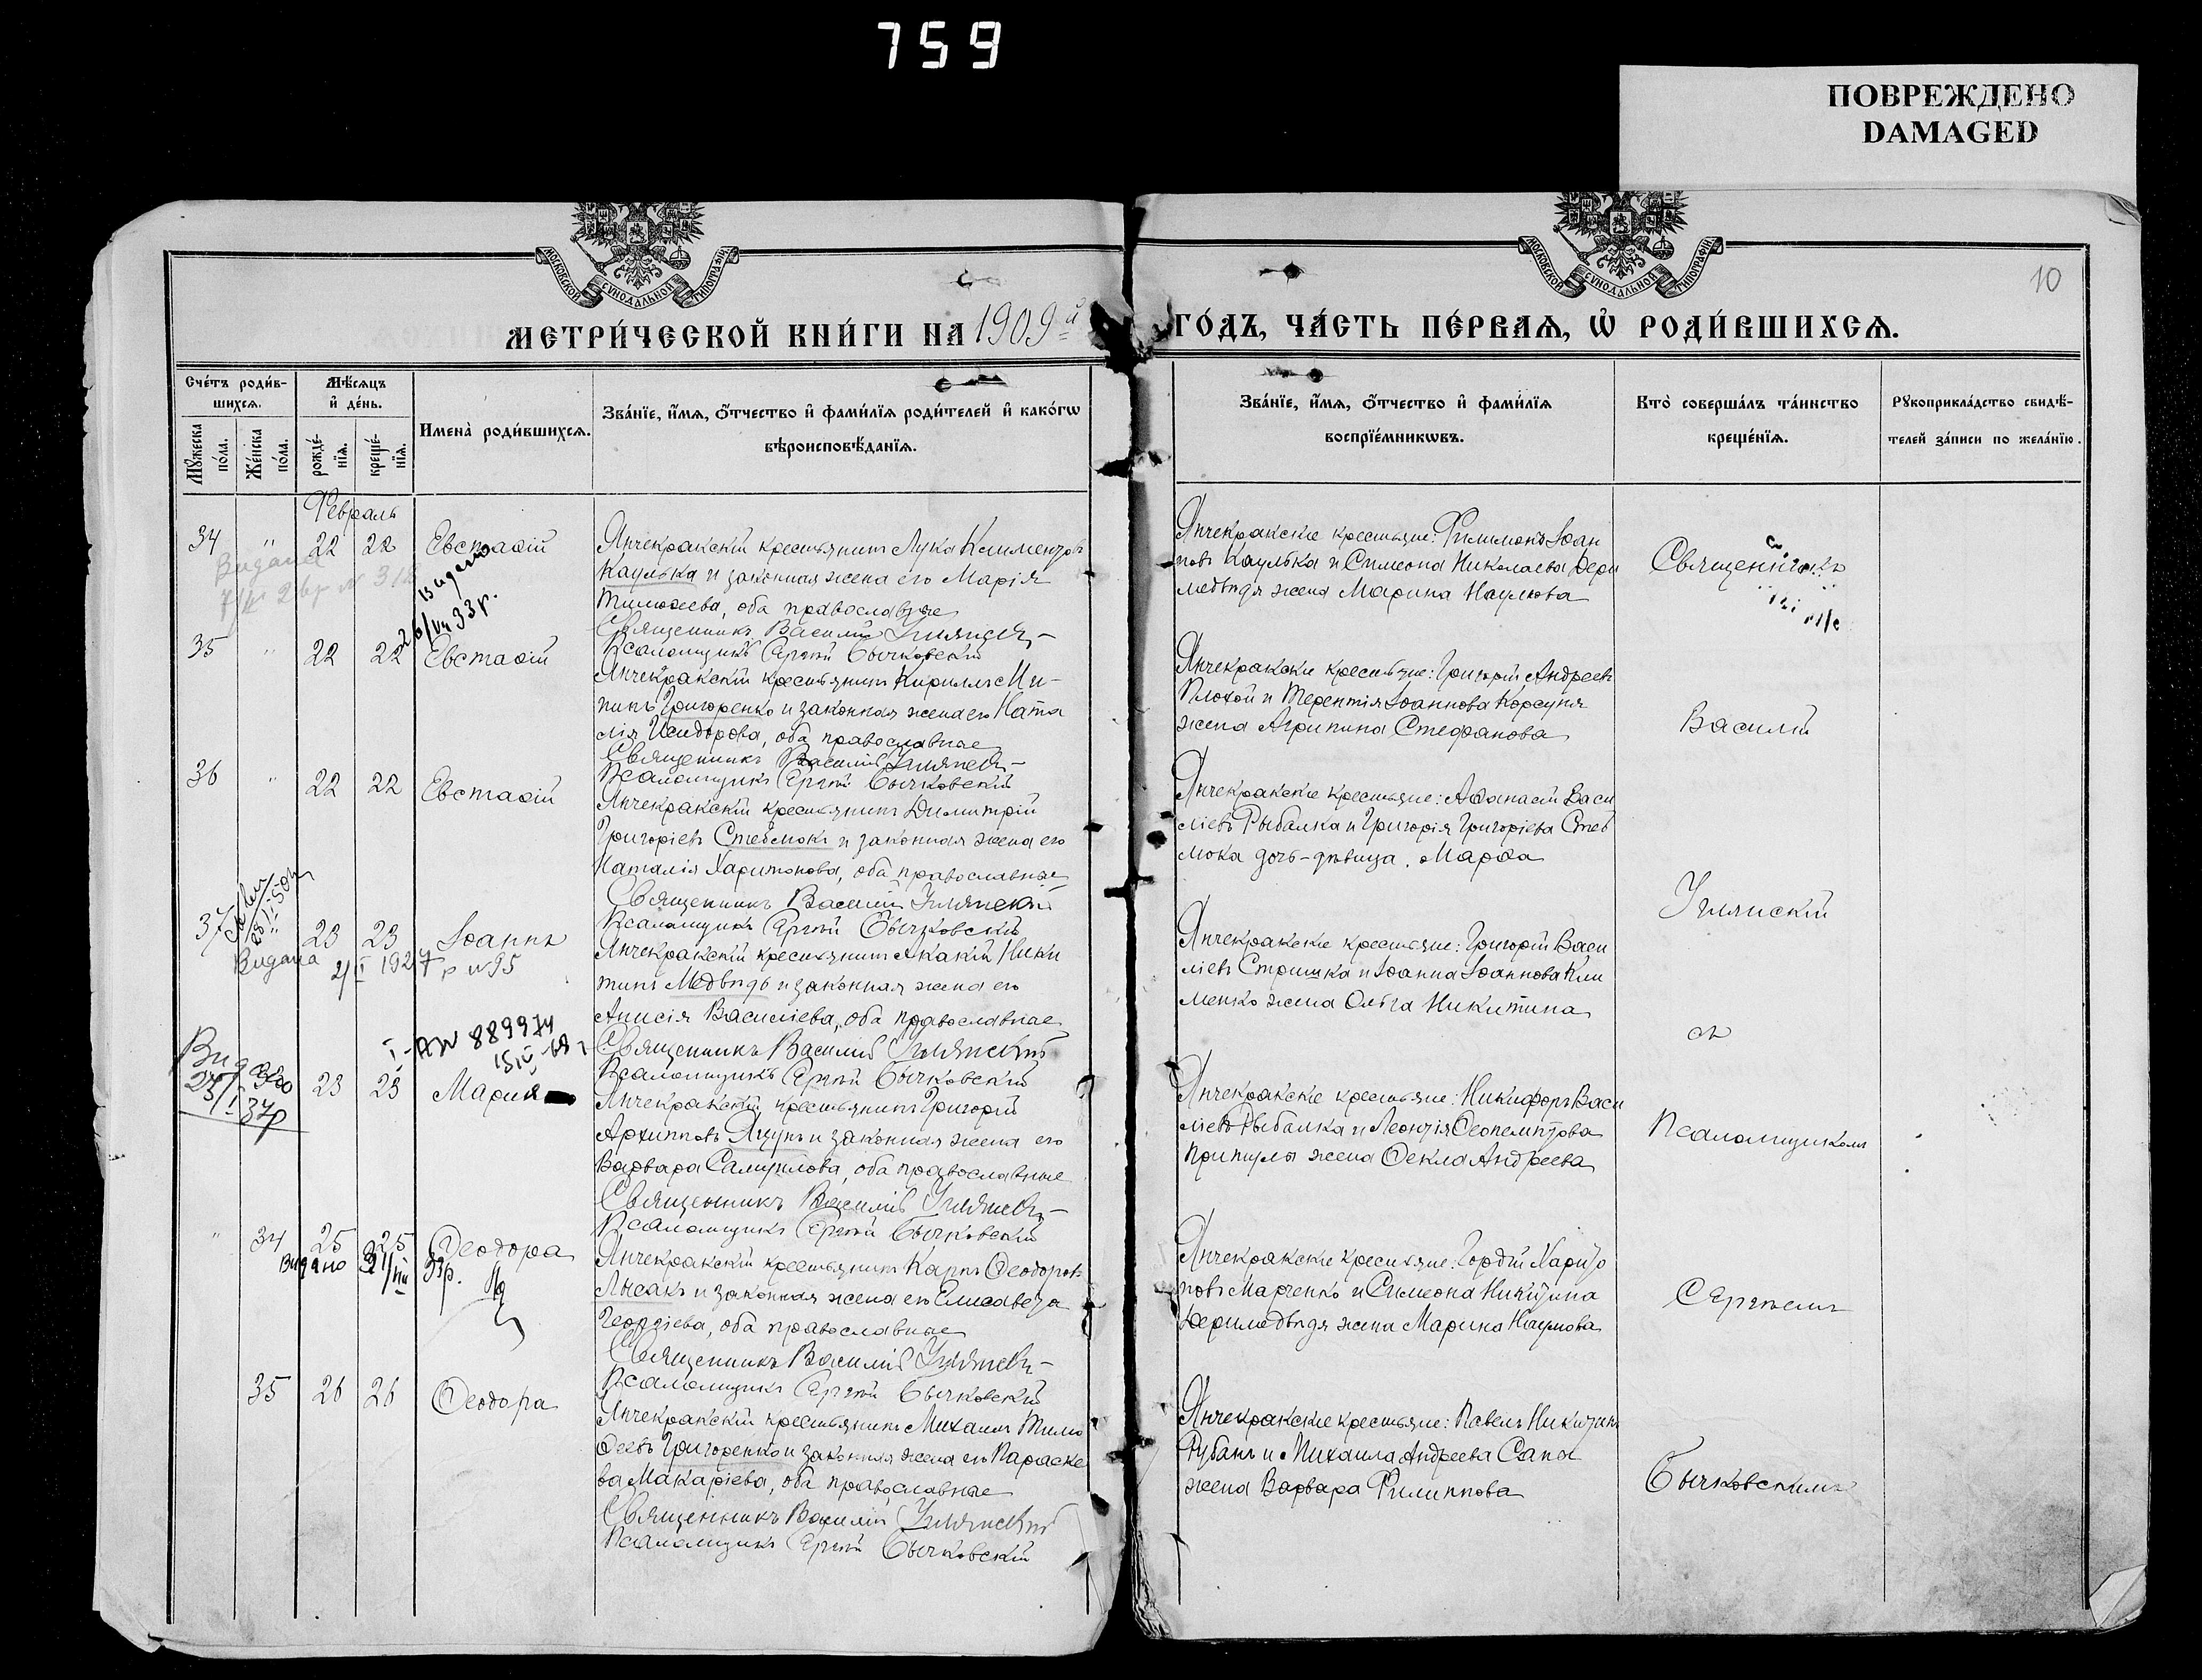 759
ПОВРЕЖДЕНО
DAMAGED
МОСКОВСКОЙ СѴНОДАЛЬНОЙ ТИПОГРАФІИ
МОСКОВСКОЙ СѴНОДАЛЬНОЙ ТИПОГРАФІИ
10
МЕТРИ́ЧЕСКОЙ КНИ́ГИ НА 1909й
ГО́ДЪ, ЧА́СТЬ ПЕ́РВАѦ, Ѡ҆ РОДИ́ВШИХСѦ.
Сче́тъ роди́в-
шихсѧ.
Мꙋ́жеска по́ла.
Же́нска по́ла.
Мѣ́сѧцъ
и҆ де́нь.
рожде́-
нїѧ.
креще́-
нїѧ.
Имена̀ роди́вшихсѧ.
Зва́нїе, и҆́мѧ, ѻ҆́тчество и҆ фами́лїѧ роди́телей и҆ како́гѡ
вѣроисповѣ́данїѧ.
Зва́нїе, и҆́мѧ, ѻ҆́тчество и҆ фами́лїѧ
воспрїе́мникѡвъ.
Кто̀ соверша́лъ та́инство
креще́нїѧ.
Рꙋкоприкла́дство свидѣ́-
телей за́писи по жела́нїю.
Февраль
34 " 22 22 Евстафій
Янчекракскій крестьянинъ Лука Климентовъ
Каулька и законная жена его Марія
Тимофеева, оба православные
Священникъ Василій Улянскій
Псаломщикъ Сергѣй Бычковскій
Янчекракскіе крестьяне: Филимонъ Іоан
новъ Каулька и Симеона Николаева Дери
медвѣдя жена Марина Наумова
Священникъ
Видана
Видано
26/VII 33 р.
35 " 22 22 Евстафій
Янчекракскій крестьянинъ Кириллъ Ми-
нинъ Григоренко и законная жена его Ната
лія Исидорова, оба православные
Священникъ Василій Улянскій
Псаломщикъ Сергѣй Бычковскій
Янчекракскіе крестьяне: Григорій Андреевъ
Плохой и Терентія Іоаннова Корсуня
жена Агрипина Стефанова
Василій
36 " 22 22 Евстафій
Янчекракскій крестьянинъ Димитрій
Григоріевъ Стебмокъ и законная жена его
Наталія Харитонова, оба православные
Священникъ Василій Улянскій
Псаломщикъ Сергѣй Бычковскій
Янчекракскіе крестьяне: Афанасій Васи
ліевъ Рыбалка и Григорія Григоріева Стеб
мока дочь-дѣвица Марфа
Улянскій
37 23 23 Іоаннъ
Видана 1927 р №95
Янчекракскій крестьянинъ Акакій Ники
тинъ Медвѣдь и законная жена его
Анисія Василіева, оба православные
Священникъ Василій Улянскій
Псаломщикъ Сергѣй Бычковскій
Янчекракскіе крестьяне: Григорій Васи
ліевъ Стришка и Іоанна Іоаннова Кли
менко жена Ольга Никитина
съ
889974
37р
23 23 Мария
Янчекракскій крестьянинъ Григорій
Архиповъ Ящукъ и законная жена его
Варвара Самуилова, оба православные
Священникъ Василій Улянскій
Псаломщикъ Сергѣй Бычковскій
Янчекракскіе крестьяне: Никифоръ Васи
ліевъ Рыбалка и Леонтія Феопемптова
Притулы жена Фекла Андреева
Псаломщикомъ
" 34 25 25 Феодора
Видано 31/VII 33р.
Янчекракскій крестьянинъ Карпъ Феодоровъ
Лысакъ и законная жена его Елисавета
Георгіева, оба православные
Священникъ Василій Улянскій
Псаломщикъ Сергѣй Бычковскій
Янчекракскіе крестьяне: Гордій Харито
новъ Марченко и Симеона Никитина
Деримедвѣдя жена Марина Наумова
Сергѣемъ
35 26 26 Феодора
Янчекракскій крестьянинъ Михаилъ Тимо
феевъ Григоренко и законная жена его Параске
ва Макаріева, оба православные
Священникъ Василій Улянскій
Псаломщикъ Сергѣй Бычковскій
Янчекракскіе крестьяне: Павелъ Никитинъ
Рубанъ и Михаила Андреева Сапа
жена Варвара Филиппова
Бычковскимъ